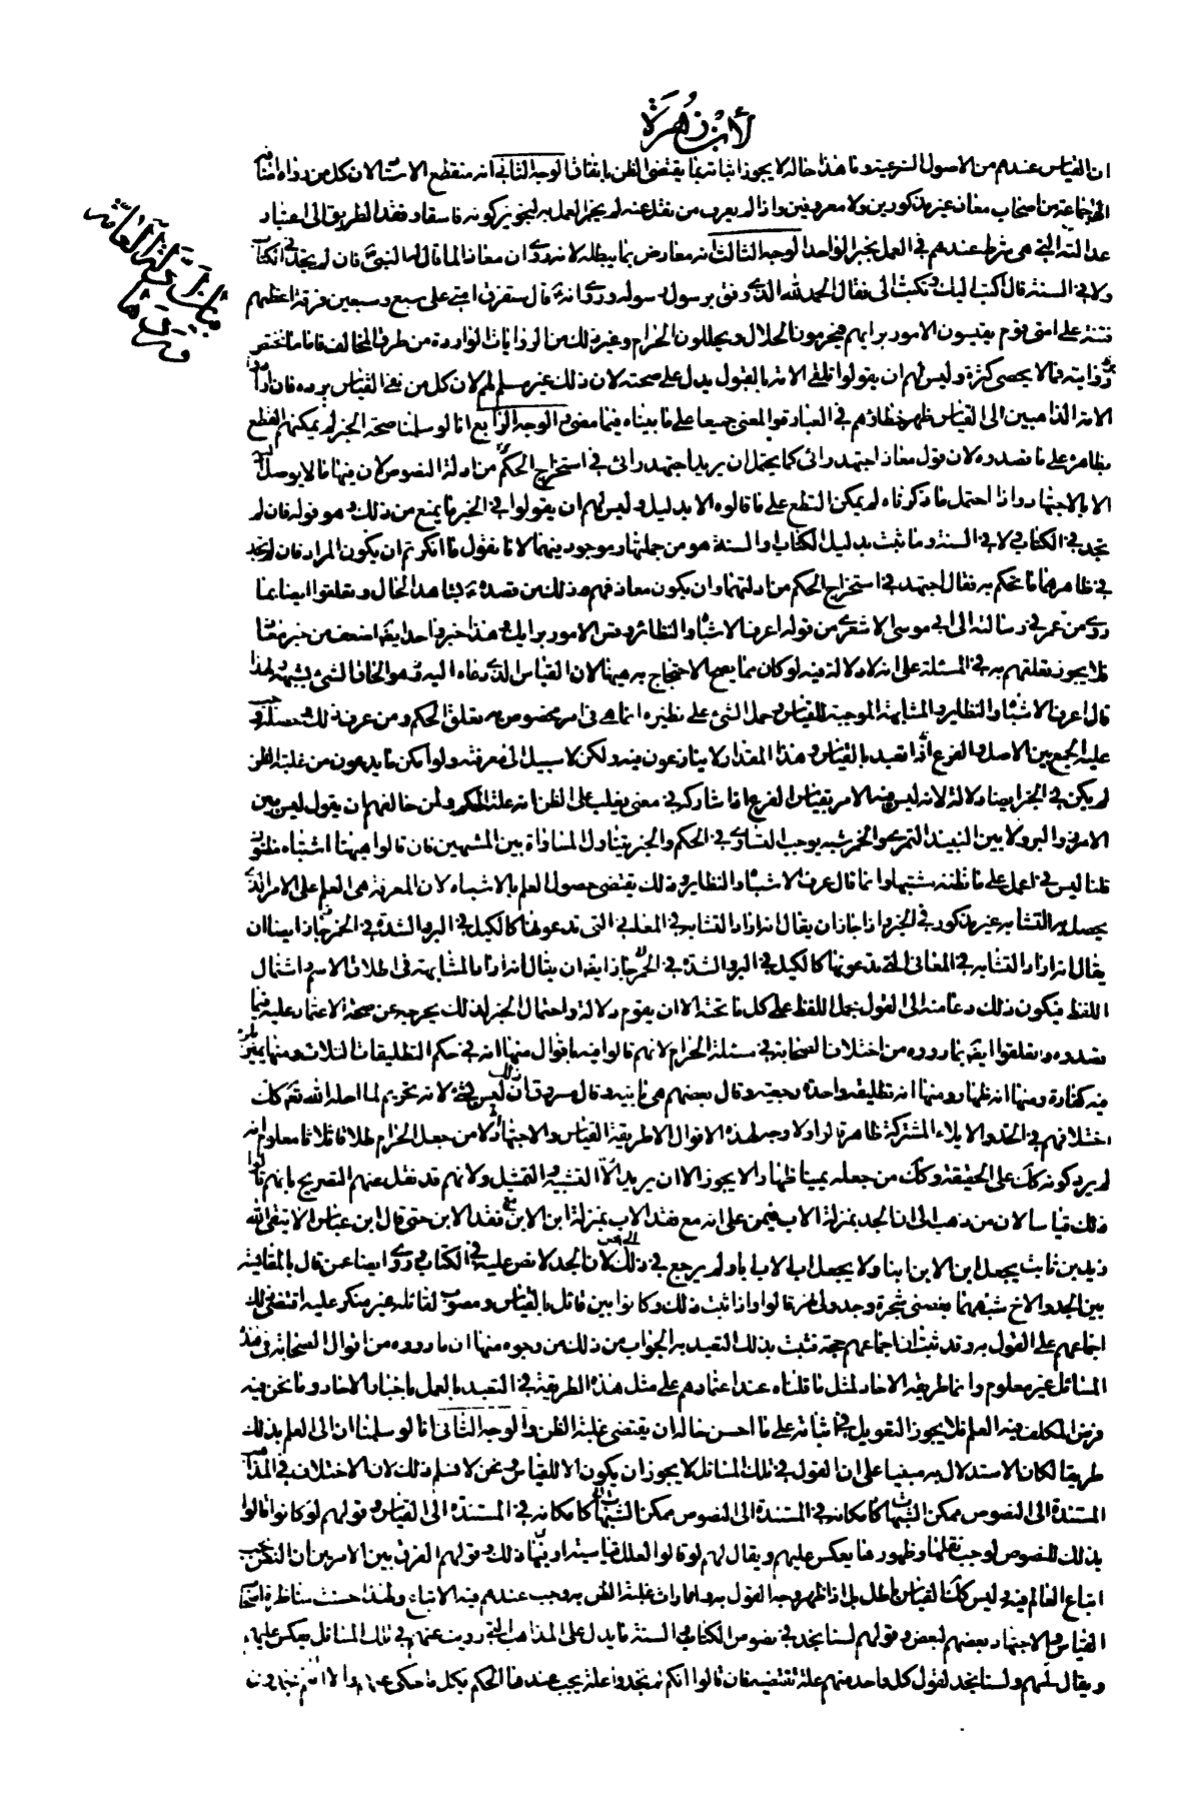 لابن زهرة
ان القياس عندهم من الاصول الشرعية وما هذا حاله لا يجوز اثباته بما يقتضى الظن باتفاق الوجه الثانى انه منقطع الاسناد لان كل من رواه اضافه
الى جماعة من اصحاب معاذ غير مذكورين ولا معروفين واذا لم يعرف من نقل عنه لم يجز العمل به لتجويز كونه فاسقا وفقد الطريق الى اعتبار
عدالته التى هى شرط عندهم فى العمل بخبر الواحد الوجه الثالث انه معارض بما يبطله لانه روى ان معاذا لما قال له النبى فان لم تجد فى الكتاب
ولا فى السنة قال اكتب اليك وتكتب الى فقال الحمد لله الذى وفق رسول رسوله وروى انه قال ستفترق امتى على سبع وسبعين فرقة اعظمهم
فتنة على امتى قوم يقيسون الامور برايهم فيحرمون الحلال ويحللون الحرام وغير ذلك من الروايات الواردة من طرق المخالف فاما ما تختص
بروايته فمما لا يحصى كثرة وليس لهم ان يقولوا تلقى الامة بالقبول يدل على صحته لان ذلك غير مسلم لهم لان كل من نفى القياس يرده فان ارادوا
الامة الذاهبين الى القياس ظهر خطاؤهم فى العبارة والمعنى جميعا على ما بيناه فيما مضى الوجه الرابع انا لو سلمنا صحة الخبر لم يمكنهم القطع
بظاهره على ما قصدوه لان قول معاذ اجتهد رائى كما يحتمل ان يريد اجتهد رائى فى استخراج الحكم من ادلة النصوص لان فيها ما لا يوصل اليه
الا بالاجتهاد واذا احتمل ما ذكرناه لم يمكن القطع على ما قالوه الا بدليل وليس لهم ان يقولوا فى الخبر ما يمنع من ذلك وهو قوله فان لم
تجد فى الكتاب ولا فى السنة وما ثبت بدليل الكتاب والسنة هو من جملتها وموجود فيهما لانا نقول ما انكرتم ان يكون المراد فان لم تجد
فى ظاهرهما ما تحكم به فقال اجتهد فى استخراج الحكم من ادلتهما وان يكون معاذ فهم ذلك من قصده بشاهد الحال وتعلقوا ايضا بما
روى من عمر فى رسالته الى ابى موسى الاشعرى من قوله اعرف الاشباه والنظائر وقس الامور برايك وهذا خبر واحد ايضا اضعف من خبر معاذ
فلا يجوز تعلقهم به فى المسئلة على انه لا دلالة فيه لو كان مما يصح الاحتجاج به هيهنا لان القياس الذى دعاه اليه وهو الحاق الشئ بشبهه ولهذا
قال اعرف الاشباه والنظاير والمشابهة الموجبة للقياس وحمل الشئ على نظيره انما هى فى امر مخصوص به تعلق الحكم ومن عرف ذلك وحصله وجب
عليه الجمع بين الاصل والفرع اذا تعبد بالقياس وهذا المقدار لا ينازعون فيه ولكن لا سبيل الى معرفته ولو امكن ما يدعون من غلبة الظن
لم يكن فى الخبر ايضا دلالة لانه ليس فيه الامر بقياس الفرع اذا شاركه فى معنى يغلب على الظن انه علة الحكم ولمن خالفهم ان يقول ليس بين
الارز والبر ولا بين النبيذ التمرى والخمر شبه يوجب التساوى فى الحكم والخبر يتناول المساواة بين المشتبهين فان قالوا هيهنا اشتباه مظنون
قلنا ليس فى اعمل على ما تظنه مشتبها وانما قال اعرف الاشباه والنظاير وذلك يقتضى حصول العلم بالاشباه لان المعرفة هى العلم على الامر الذى
يحصل به التشابه غير مذكور فى الخبر واذا جاز ان يقال انه اراد التشابه فى المعانى التى تدعونها كالكيل فى البر والشدة فى الخمر جاز ايضا ان
يقال انه اراد التشابه فى المعانى التى تدعونها كالكيل فى البر والشدة فى الخمر جاز ايضا ان يقال انه اراد المشابهة فى اطلاق الاسم واشتمال
اللفظ فيكون ذلك دعا منه الى القول بحمل اللفظ على كل ما تحته الا ان يقوم دلالة واحتمال الخبر لذلك يخرجه عن صحة الاعتماد عليه فيما
قصدوه وتعلقوا ايضا بما رووه من اختلاف الصحابة فى مسئلة الحرام لانهم قالوا فيه باقوال منها انه فى حكم التطليقات الثلاث ومنها يمين يلزم
فيه كفارة ومنها انه ظهار ومنها انه تطليقة واحدة رجعية وقال بعضهم هى باينة وقال مسروق ان ذلك ليس بشئ لانه تحريم لما احله الله تعالى وكذلك
اختلافهم فى الجد والايلاء والمشتركة ظاهر قالوا ولا وجه لهذه الاقوال الا طريقة القياس والاجتهاد لان من جعل الحرام طلاقا ثلاثا معلوم انه
لم يرد كونه كذلك على الحقيقة وكذلك من جعله يمينا وظهارا لا يجوز الا ان يريد الا التشبيه والتمثيل ولانهم قد نقل عنهم التصريح بانهم قالوا
ذلك قياسا لان من ذهب الى ان الجد بمنزلة الاب فيمن على انه مع فقد الاب بمنزلة ابن الابن مع فقد الابن حتى قال ابن عباس الا يتقى الله
زيد بن ثابت يجعل ابن الابن ابنا ولا يجعل اب الاب ابا ولم يرجع فى ذلك الى نص لان الجد لا نص عليه فى الكتاب وروى ايضا عن قال بالمقايسة
بين الجد والاخ شبههما بغصنى شجرة وجدولى نهر قالوا واذا ثبت ذلك وكانوا بين قائل بالقياس ومصوب لقائله غير منكر عليه اقتضى ذلك
اجماعهم على القول به وقد ثبت ان اجماعهم حجة فثبت بذلك التعبد به الجواب من ذلك من وجوه منها ان ما رووه من اقوال الصحابة فى هذه
المسائل غير معلوم وانما طريقه الاحاد لمثل ما قلناه عند اعتمادهم على مثل هذه الطريقة فى التعبد بالعمل باخبار الاحاد وما نحن فيه
فرض المكلف فيه العلم فلا يجوز التعويل فى اثباته على ما احسن حاله ان يقتضى غلبة الظن والوجه الثانى انا لو سلمنا ان الى العلم بذلك
طريقا لكان الاستدلال به مبنيا على ان القول فى تلك المسائل لا يجوز ان يكون الا للقياس ونحن لا نسلم ذلك لان الاختلاف فى المذاهب
المستندة الى النصوص ممكن للشبهات كامكانه فى المستندة الى القياس وقولهم لو كانوا قالوا
بذلك للنصوص لوجب نقلها وظهورها يعكس عليهم ويقال لهم لو قالوا العلل قياسية او ينها ذلك وقولهم الفرق بين الامرين ان النص يجب
اتباع العالم فيه وليس كذلك القياس باطل بل اذا ظهر وجه القول به وامارات غلبة الظن به وجب عندهم فيه الاتباع ولهذا حسنت مناظرة اصحاب
القياس والاجتهاد بعضهم لبعض وقولهم لسنا نجد فى نصوص الكتاب والسنة ما يدل على المذاهب التى رويت عنهم فى تلك المسائل يعكس عليهم
ويقال لهم ولسنا نجد لقول كل واحد منهم علة تقتضيه فان قالوا انكم تجدوا علة يجب عندها الحكم بكل ما حكى عنهم والا